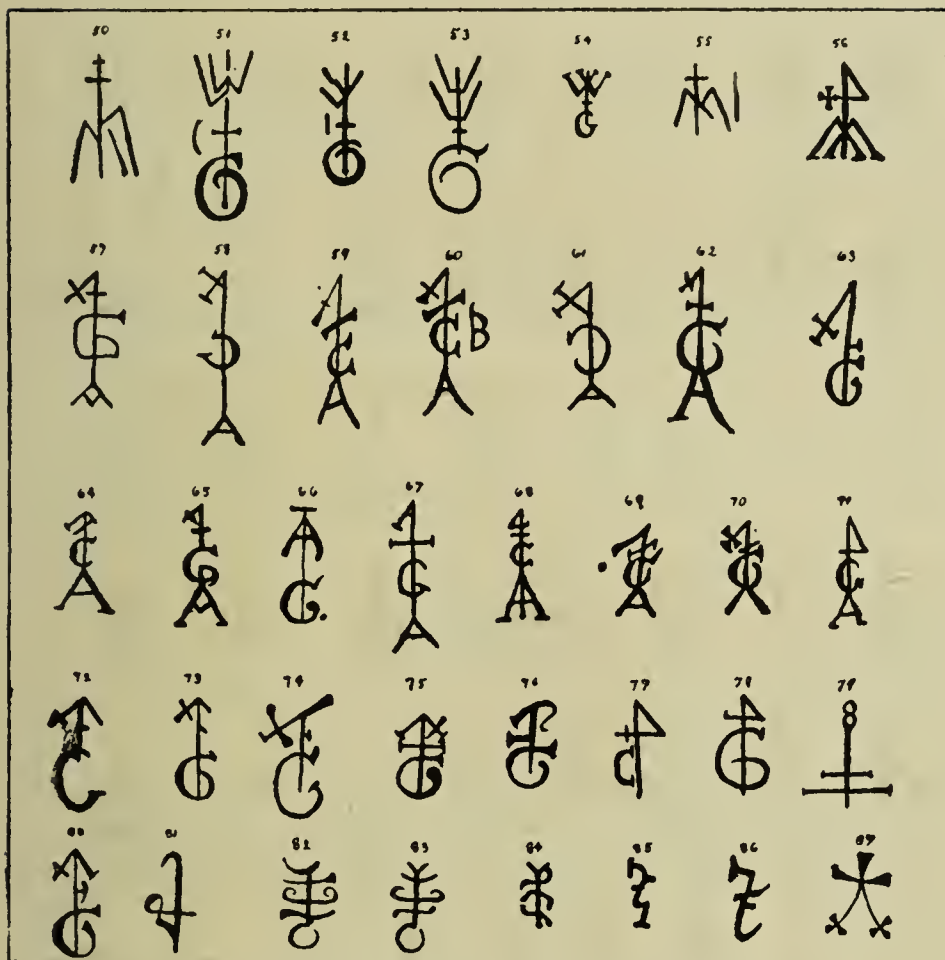 50 51 52 53 54 55 56
57 58 59 60 61 62 63
64 65 66 67 68 69 70 71
72 73 74 75 76 77 78 79
80 81 82 83 84 85 86 87